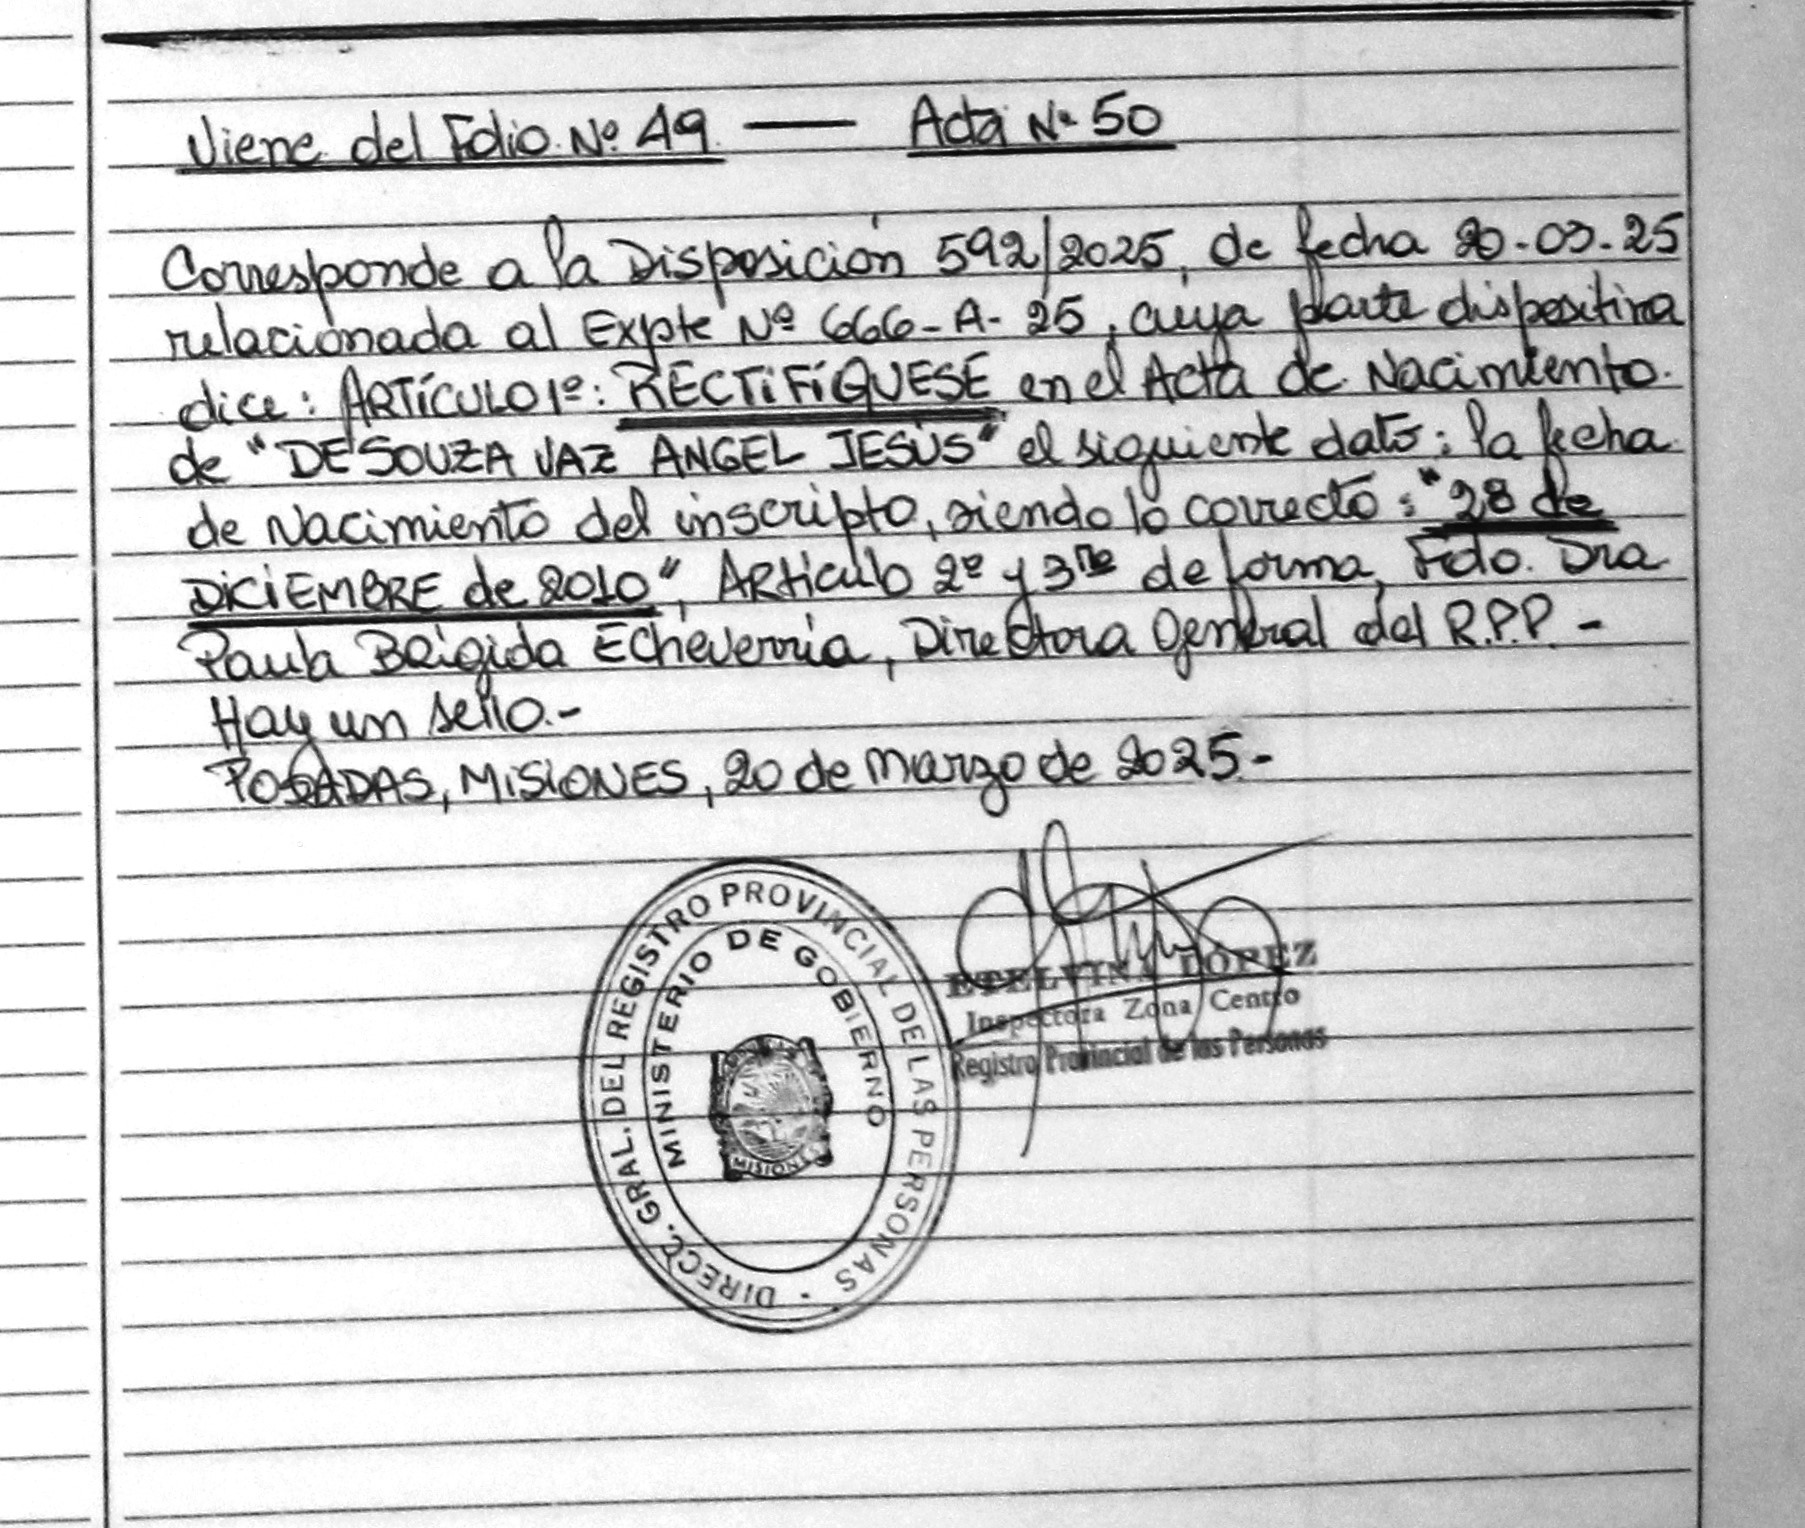 Viene del Folio Nº 49 — Acta Nº 50
Corresponde a la Disposición 592/2025, de fecha 20-03-25
relacionada al Expte Nº 666-A-25, cuya parte dispositiva
dice: ARTÍCULO 1º: RECTIFÍQUESE en el Acta de Nacimiento
de "DE SOUZA VAZ ANGEL JESÚS" el siguiente dato: la fecha
de Nacimiento del inscripto, siendo lo correcto: "28 de
DICIEMBRE de 2010", Artículo 2º y 3ro de forma, Fdo. Dra
Paula Brigida Echeverria, Directora General del R.P.P.-
Hay un sello.-
POSADAS, MISIONES, 20 de marzo de 2025-
DIRECC. GRAL. DEL REGISTRO PROVINCIAL DE LAS PERSONAS
MINISTERIO DE GOBIERNO
MISIONES
ETELVINA LOPEZ
Inspectora Zona Centro
Registro Provincial de las Personas